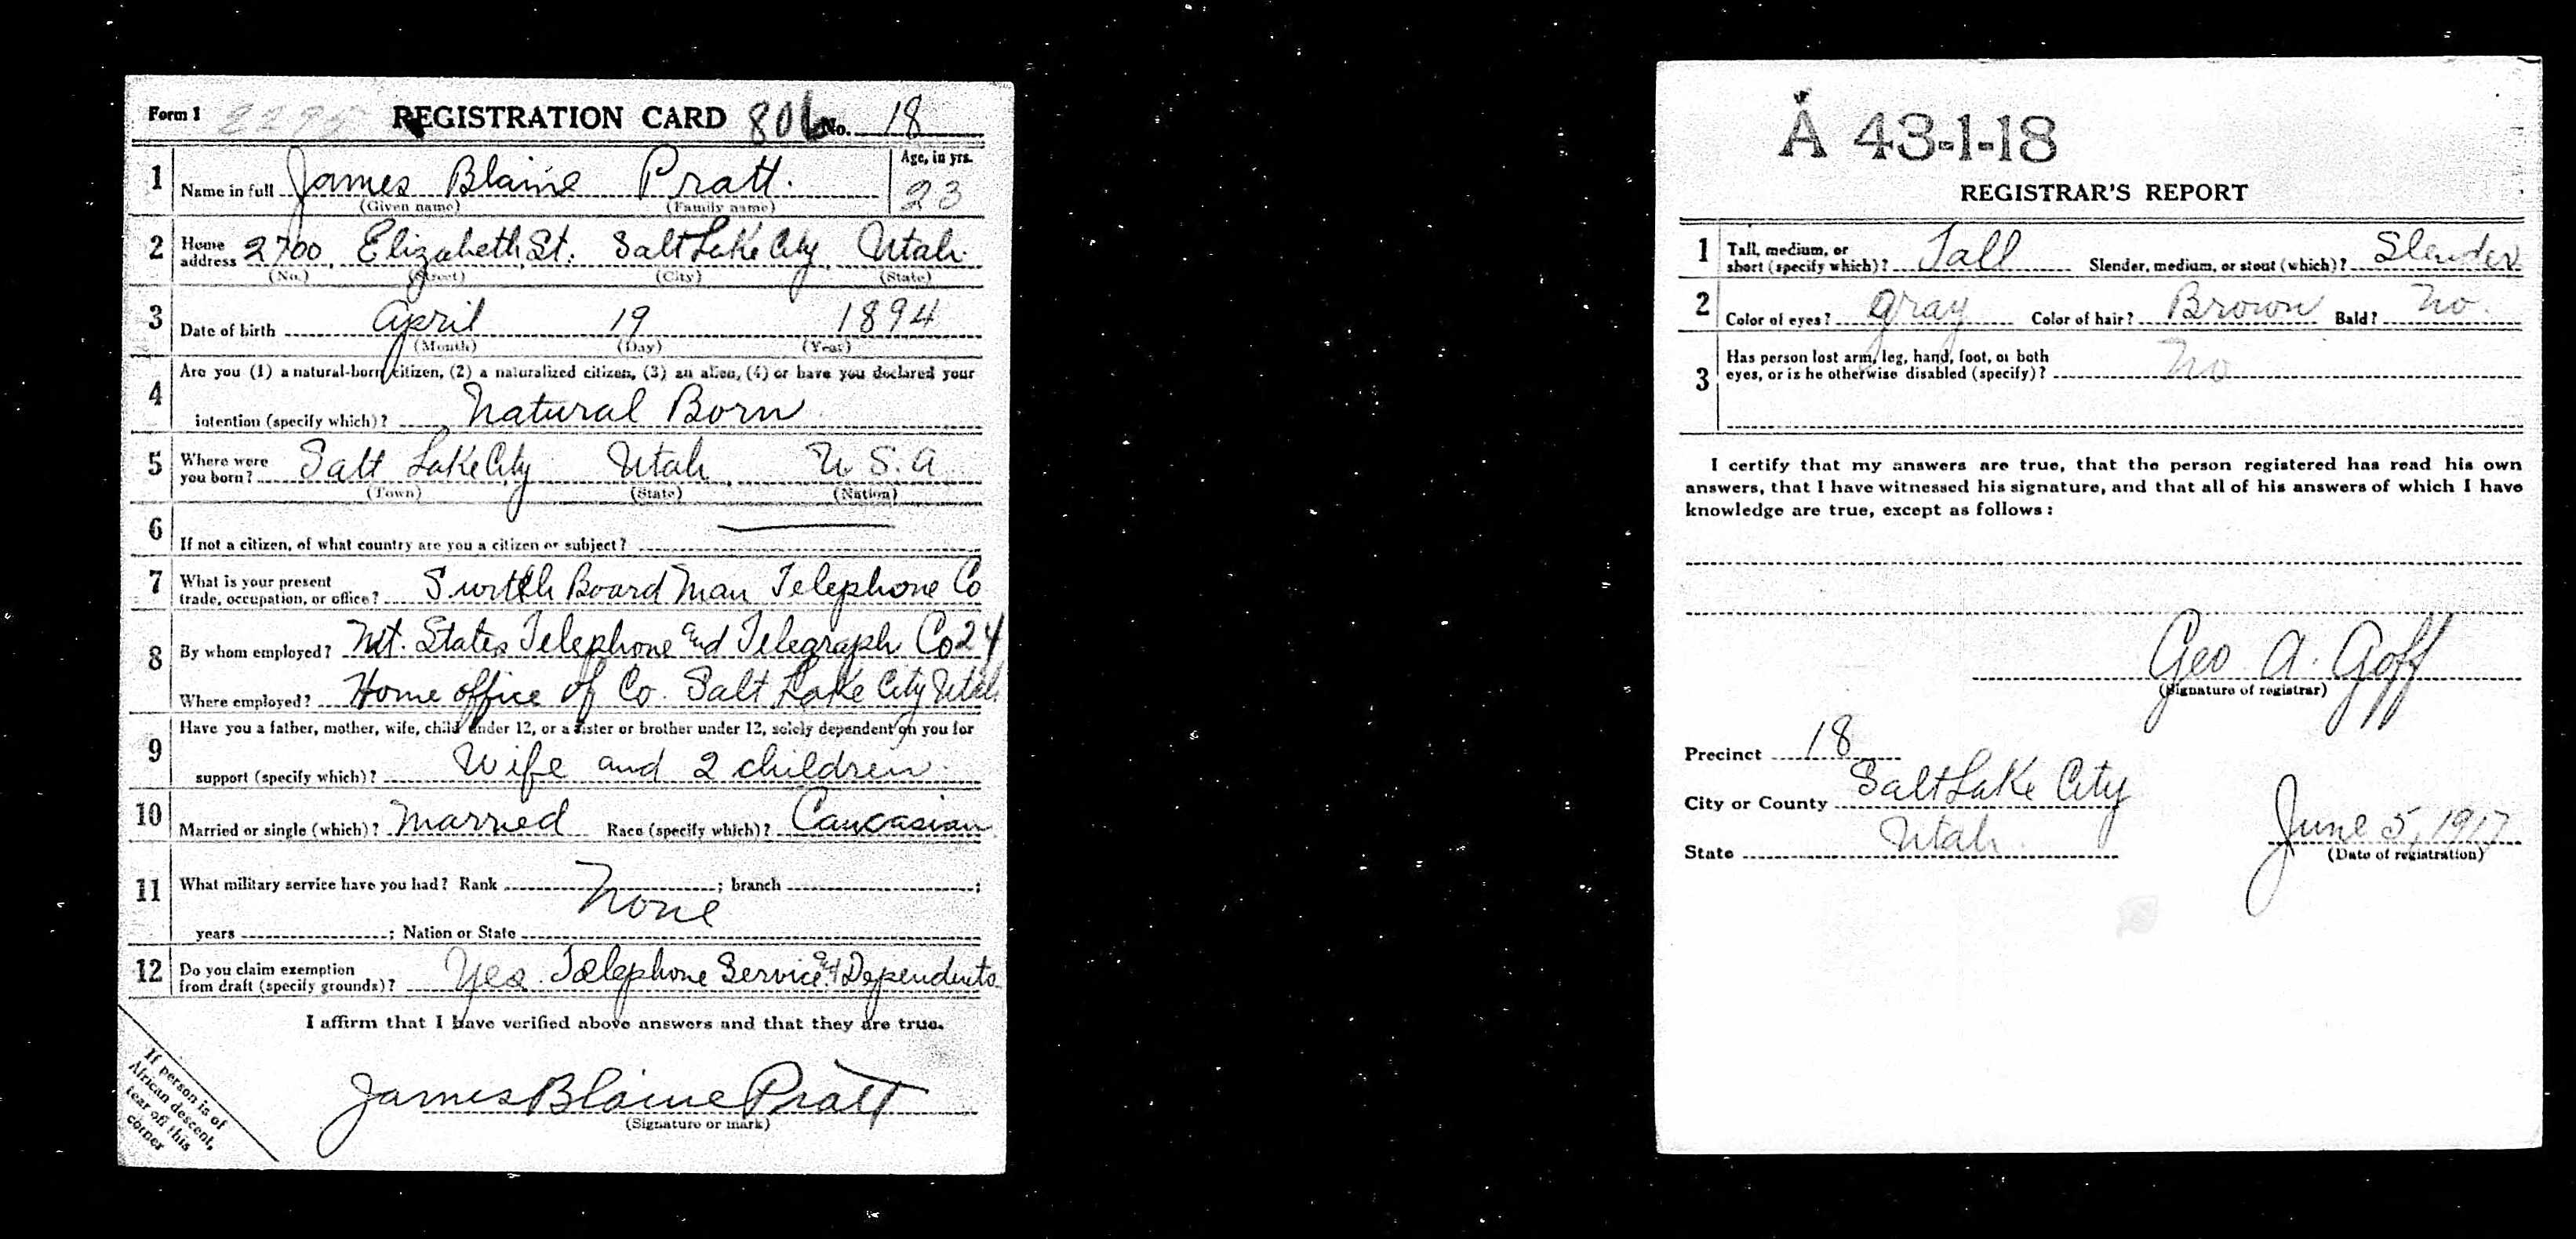 Form 1 2295 REGISTRATION CARD 806 No. 18
1 Name in full James Blaine Pratt. Age, in yrs. 23
(Given name) (Family name)
2 Home address 2700 Elizabeth St. Salt Lake City, Utah.
(No.) (Street) (City) (State)
3 Date of birth April 19 1894
(Month) (Day) (Year)
4 Are you (1) a natural-born citizen, (2) a naturalized citizen, (3) an alien, (4) or have you declared your
intention (specify which)? Natural Born
5 Where were you born? Salt Lake City Utah U.S.A
(Town) (State) (Nation)
6 If not a citizen, of what country are you a citizen or subject?
7 What is your present trade, occupation, or office? Switch Board Man Telephone Co
8 By whom employed? Mt. States Telephone and Telegraph Co 24
Where employed? Home office of Co. Salt Lake City Utah
9 Have you a father, mother, wife, child under 12, or a sister or brother under 12, solely dependent on you for
support (specify which)? Wife and 2 children.
10 Married or single (which)? Married Race (specify which)? Caucasian
11 What military service have you had? Rank ; branch ;
None
years ; Nation or State
12 Do you claim exemption from draft (specify grounds)? Yes. Telephone Service and Dependents
I affirm that I have verified above answers and that they are true.
James Blaine Pratt
(Signature or mark)
If person is of
African descent,
tear off this
corner
A 43-1-18
REGISTRAR'S REPORT
1 Tall, medium, or short (specify which)? Tall Slender, medium, or stout (which)? Slender
2 Color of eyes? Gray Color of hair? Brown Bald? No.
3 Has person lost arm, leg, hand, foot, or both
eyes, or is he otherwise disabled (specify)? No
I certify that my answers are true, that the person registered has read his own
answers, that I have witnessed his signature, and that all of his answers of which I have
knowledge are true, except as follows:
Geo. A. Goff
(Signature of registrar)
Precinct 18
City or County Salt Lake City
State Utah. June 5, 1917
(Date of registration)